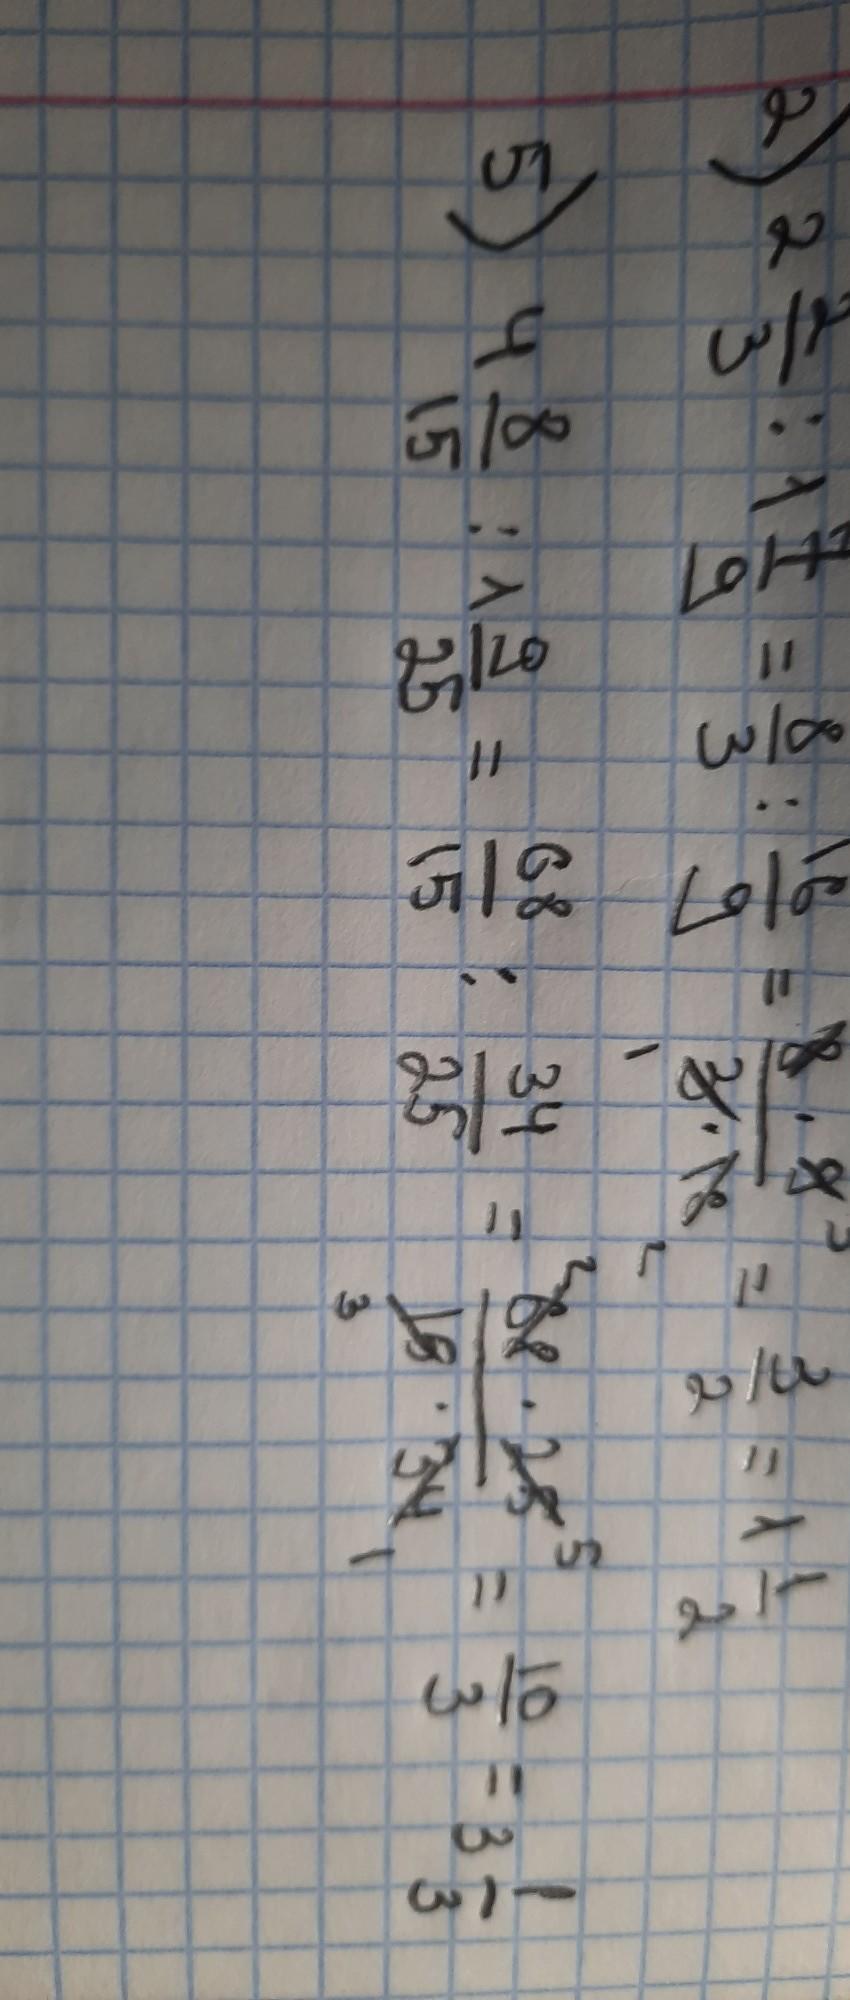 2) 2 2/3 : 1 7/9 = 8/3 : 16/9 = 8 · 9 / 3 · 16 = 3/2 = 1 1/2
5) 4 8/15 : 1 9/25 = 68/15 : 34/25 = 68 · 25 / 15 · 34 = 10/3 = 3 1/3